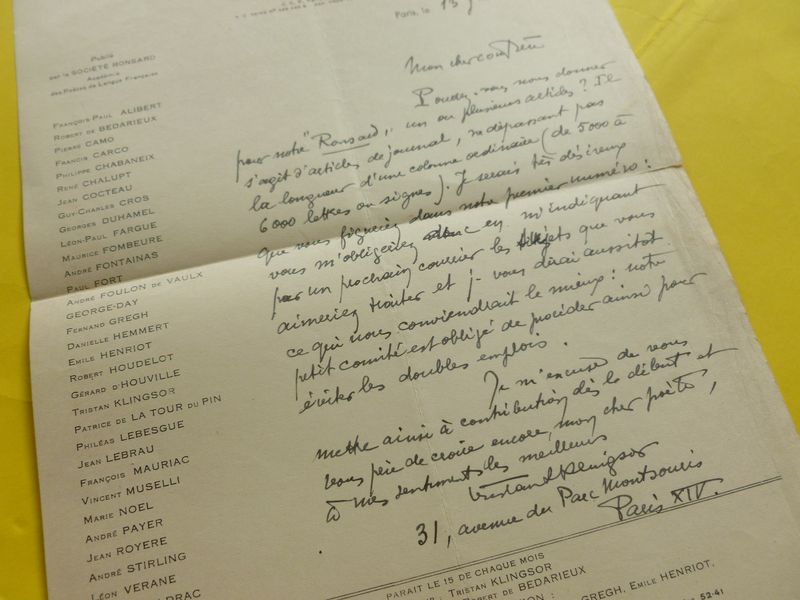 Paris, le 13
Publié
par la SOCIÉTÉ RONSARD
Académie
des Poètes de Langue Française
François-Paul ALIBERT
Robert de BEDARIEUX
Pierre CAMO
Francis CARCO
Philippe CHABANEIX
René CHALUPT
Jean COCTEAU
Guy-Charles CROS
Georges DUHAMEL
Léon-Paul FARGUE
Maurice FOMBEURE
André FONTAINAS
Paul FORT
André FOULON de VAULX
GEORGE-DAY
Fernand GREGH
Danielle HEMMERT
Emile HENRIOT
Robert HOUDELOT
Gérard d'HOUVILLE
Tristan KLINGSOR
Patrice de LA TOUR du PIN
Philéas LEBESGUE
Jean LEBRAU
François MAURIAC
Vincent MUSELLI
Marie NOEL
André PAYER
Jean ROYERE
André STIRLING
Léon VERANE
DRAC
Mon cher confrère
Pouvez-vous nous donner
pour notre "Ronsard", un ou plusieurs articles? Il
s'agit d'articles de journal, ne dépassant pas
la longueur d'une colonne ordinaire (de 5000 à
6000 lettres ou signes). Je serais très désireux
que vous figuriez dans notre premier numéro:
vous m'obligeriez en m'indiquant
par un prochain courrier les sujets que vous
aimeriez traiter et je vous dirai aussitôt
ce qui nous conviendrait le mieux: notre
petit comité est obligé de procéder ainsi pour
éviter les doubles emplois.
Je m'excuse de vous
mettre ainsi à contribution dès le début et
vous prie de croire encore, mon cher poète,
à mes sentiments les meilleurs
Tristan Klingsor
31, avenue du Parc Montsouris
Paris XIV.
PARAIT LE 15 DE CHAQUE MOIS
: Tristan KLINGSOR
Robert de BEDARIEUX
ION :
GREGH, Emile HENRIOT,
52-41